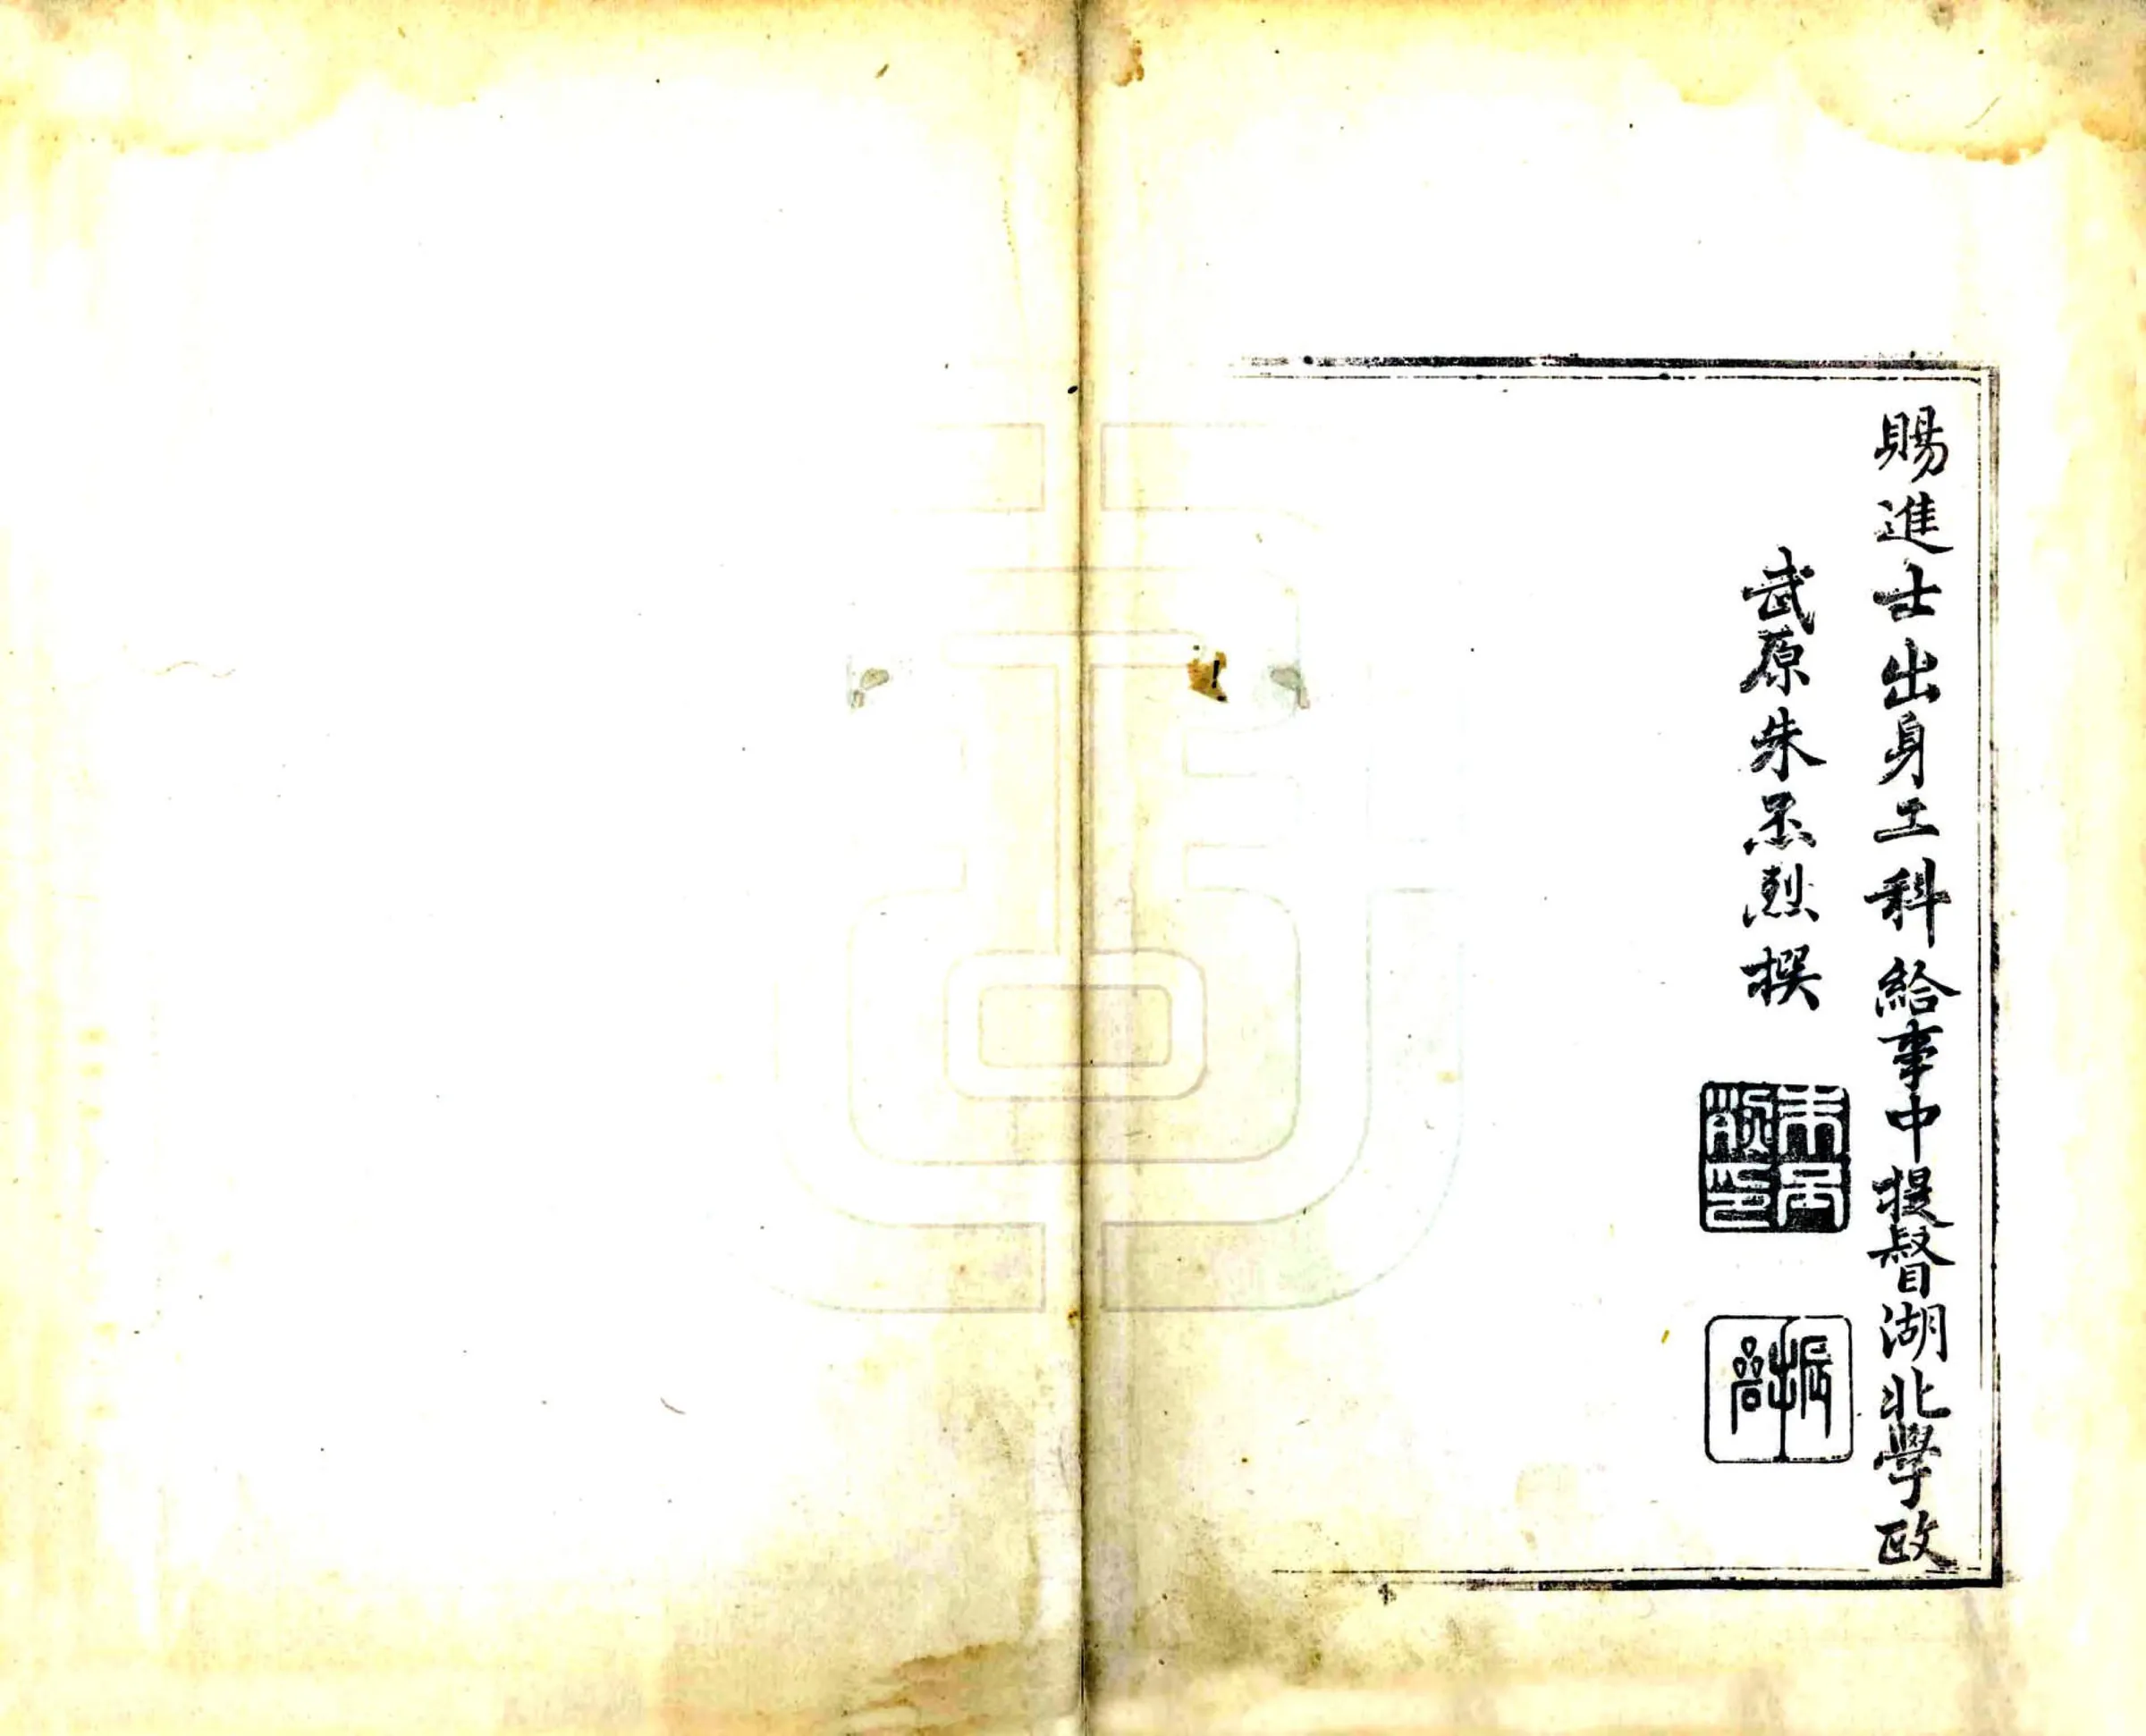 賜進士出身工科給事中提督湖北學政
武原朱丕烈撰
朱丕烈印
振